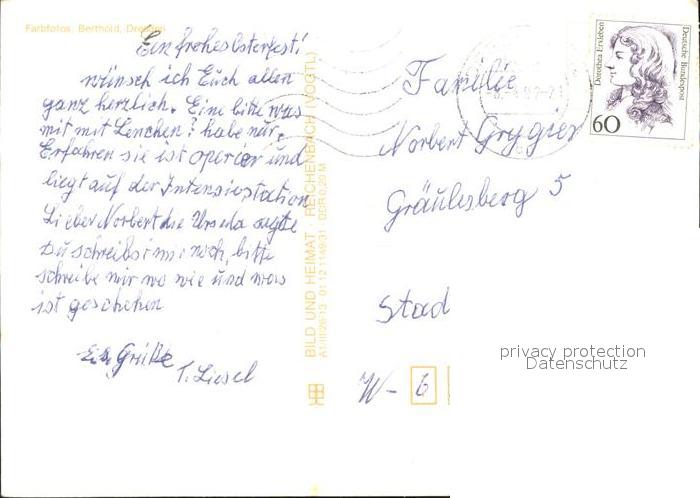 Farbfotos, Berthold, Dresden
Ein frohes Osterfest!
wünsch ich Euch allen
ganz herzlich. Eine bitte was
mit mit Lenchen? habe nur
Erfahren sie ist operier und
liegt auf der Intensivstation
Lieber Norbert die Ursula sagte
Du schreibst mir noch, bitte
schreibe mir wo wie und was
ist geschehen
Grüße
T. Liesel
BILD UND HEIMAT · REICHENBACH (VOGTL)
A1/III/26/13 01 12 1149/31 DDR 0,20 M
Familie
Norbert Grygier
5
Stad
W-6
Dorothea Erxleben
Deutsche Bundespost
60
privacy protection
Datenschutz